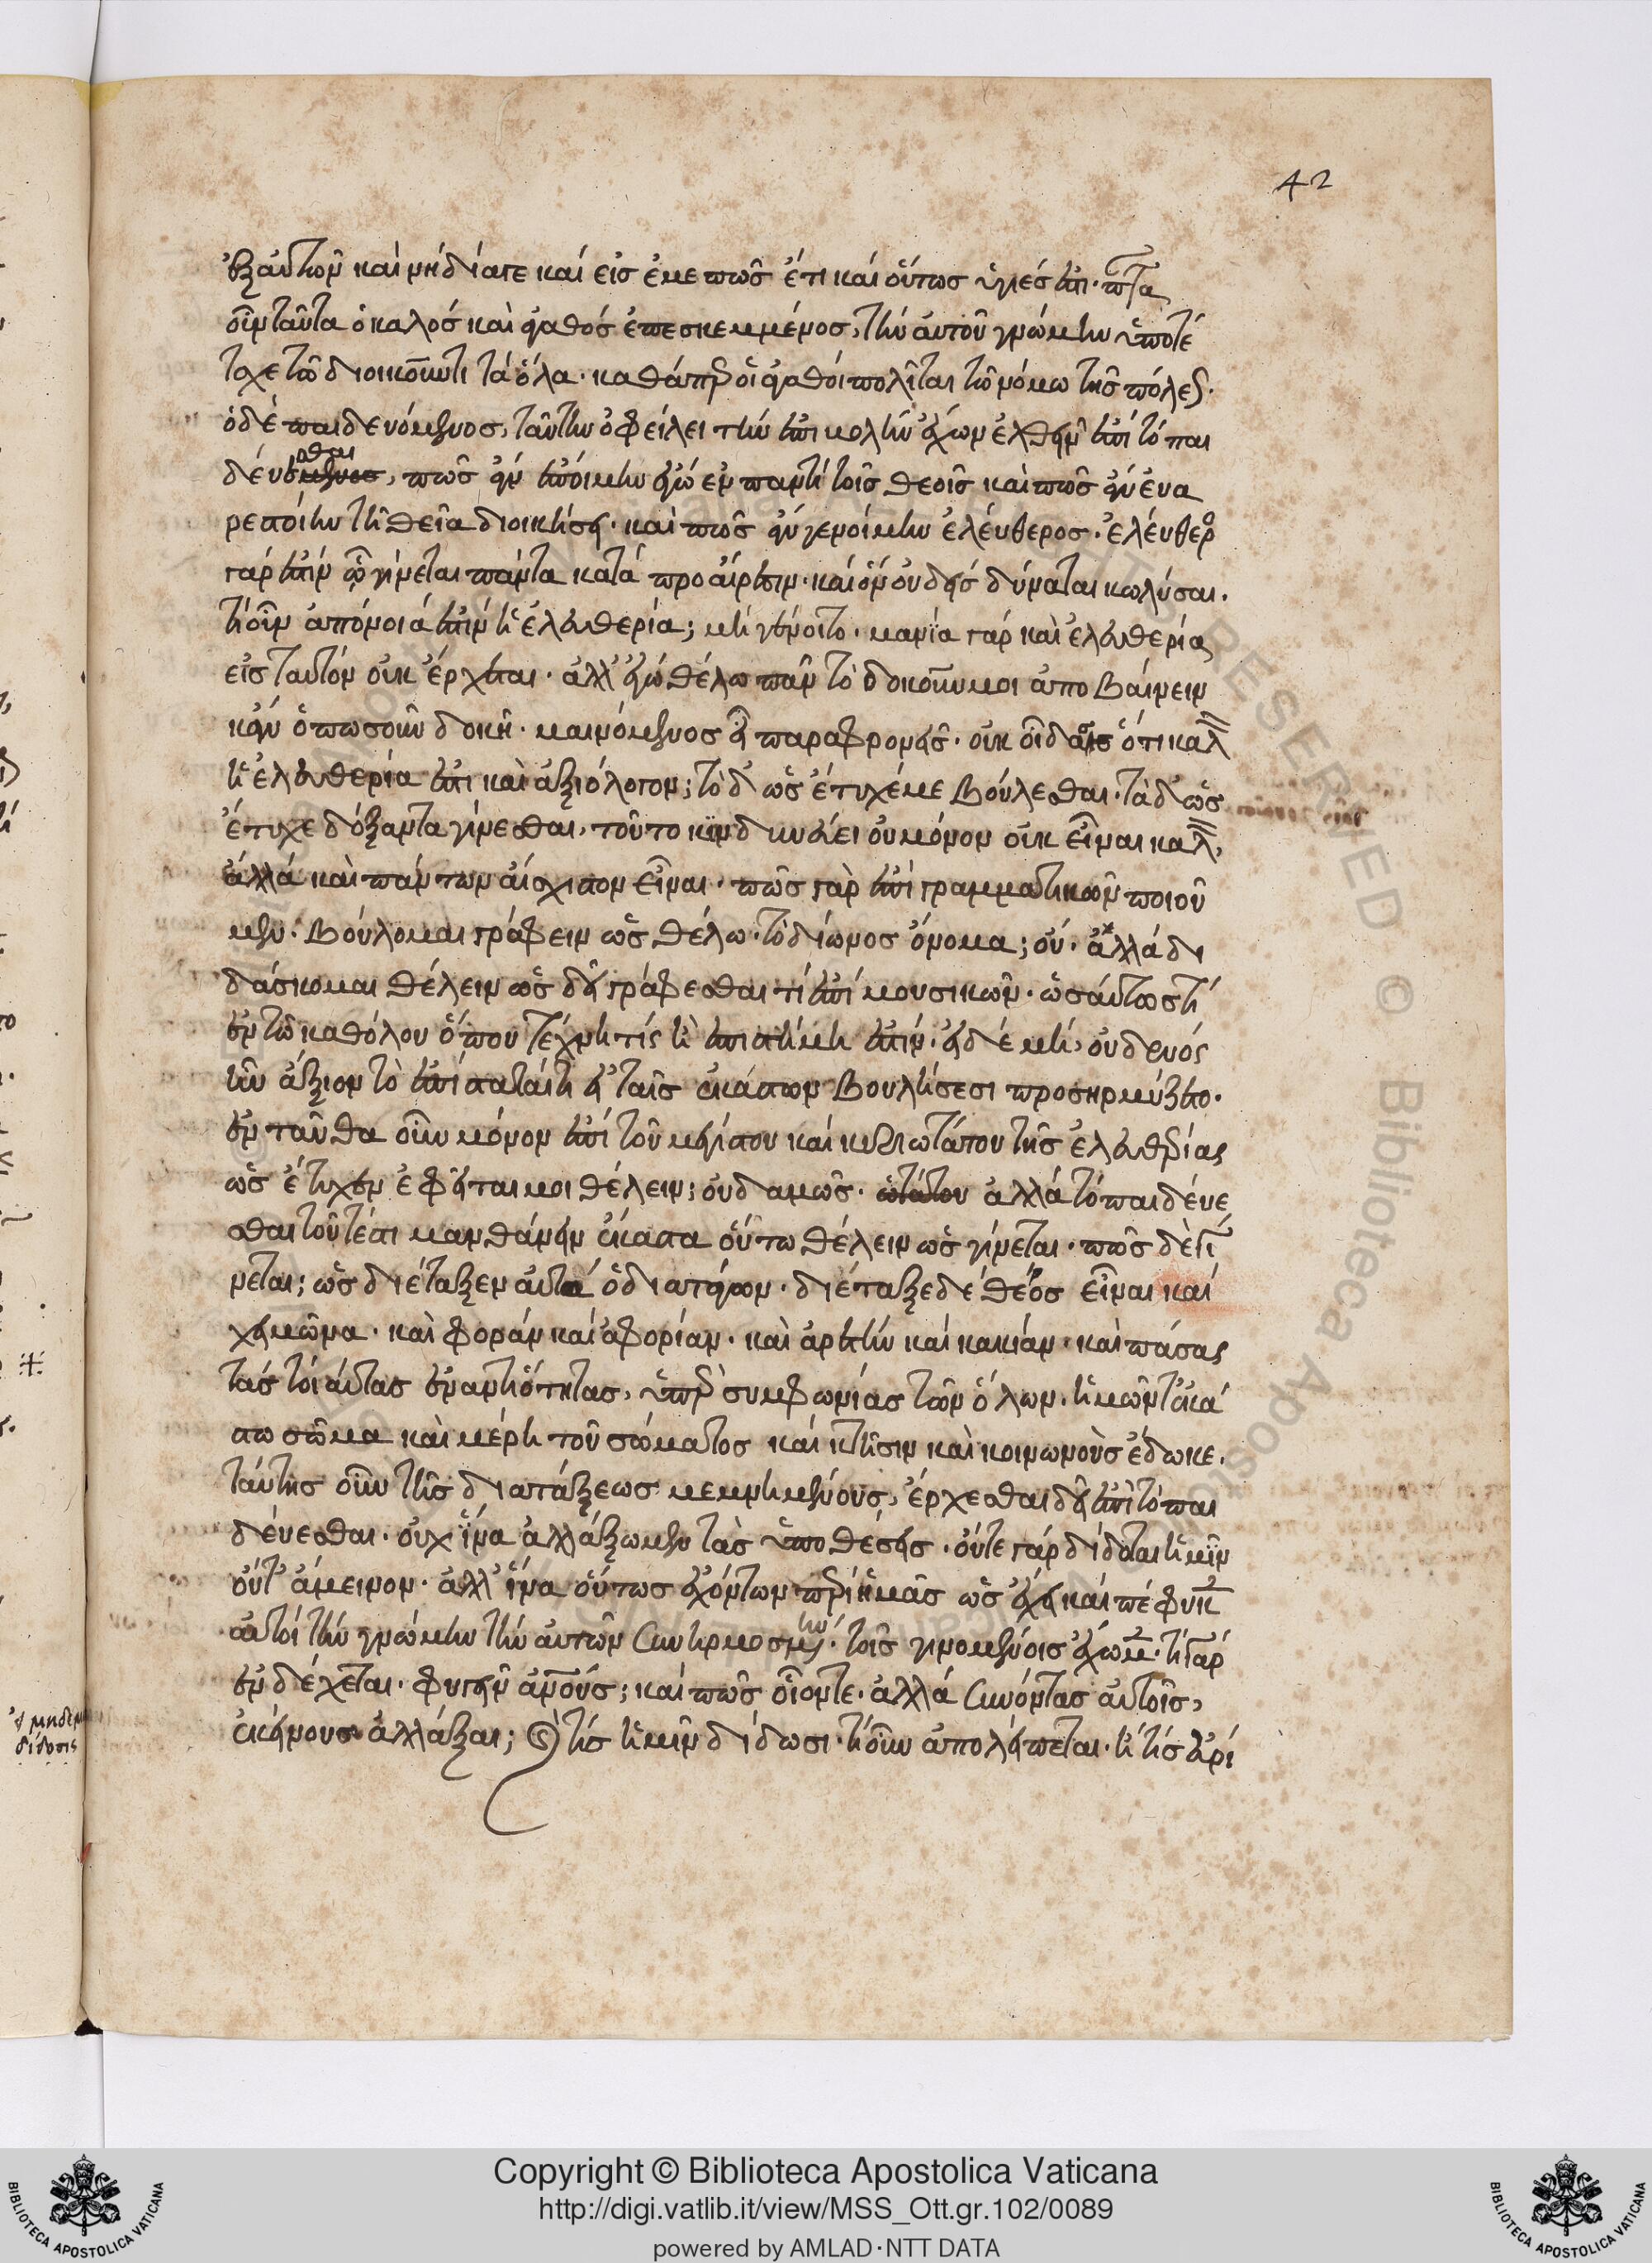 42
ἐξ αὐτῶν καὶ μὴ δίατε καὶ εἰς ἐμὲ πῶς ἔτι καὶ οὕτως ὑγιές ἐστι· πάντα
οὖν ταῦτα ὁ καλὸς καὶ ἀγαθὸς ἐπεσκεμμένος, τὴν αὑτοῦ γνώμην ὑποτέ
ταχε τῶ διοικοῦντι τὰ ὅλα· καθάπερ οἱ ἀγαθοὶ πολῖται τῶ νόμω τῆς πόλεως·
ὁ δὲ παιδευόμενος, ταύτην ὀφείλει τὴν ἐπιβολὴν ἔχων ἐλθεῖν ἐπὶ τὸ παι
δεύεσθαι, πῶς ἂν ἑποίμην ἐγὼ ἐν παντὶ τοῖς θεοῖς καὶ πῶς ἂν εὐα
ρεστοίην τῆ θεία διοικήσει· καὶ πῶς ἂν γενοίμην ἐλεύθερος· ἐλεύθερος
γάρ ἐστιν ᾧ γίνεται πάντα κατὰ προαίρεσιν· καὶ ὃν οὐδεὶς δύναται κωλῦσαι·
τί οὖν ἀπόνοιά ἐστιν ἡ ἐλευθερία; μὴ γένοιτο· μανία γὰρ καὶ ἐλευθερία
εἰς ταυτὸν οὐκ ἔρχεται· ἀλλ' ἐγὼ θέλω πᾶν τὸ δοκοῦν μοι ἀποβαίνειν
κἂν ὁπωσοῦν δοκῆ· μαινόμενος εἶ παραφρονεῖς· οὐκ οἶδας ὅτι καλὸν
ἡ ἐλευθερία ἐστὶ καὶ ἀξιόλογον; τὸ δ' ὡς ἔτυχέ με βούλεσθαι· τὰ δ' ὡς
ἔτυχε δόξαντα γίνεσθαι, τοῦτο κινδυνεύει οὐ μόνον οὐκ εἶναι καλὸν,
ἀλλὰ καὶ πάντων αἴσχιστον εἶναι· πῶς γὰρ ἐπὶ γραμματικῶν ποιοῦ
μεν· βούλομαι γράφειν ὡς θέλω· τὸ δίωνος ὄνομα; οὔ· ἀλλὰ δι
δάσκομαι θέλειν ὡς δεῖ γράφεσθαι τί ἐπὶ μουσικῶν· ὡσαύτως τί
ἐν τῶ καθόλου ὅπου τέχνη τίς ἢ ἐπιστήμη ἐστίν· εἰ δὲ μὴ, οὐδενός
ἦν ἄξιον τὸ ἐπίστασθαί τι εἰ ταῖς ἑκάστων βουλήσεσι προσηρμόζετο·
ἐνταῦθα οὖν μόνον ἐπὶ τοῦ μεγίστου καὶ κυριωτάτου τῆς ἐλευθερίας
ὡς ἔτυχεν ἐφεῖταί μοι θέλειν; οὐδαμῶς· ἀλλὰ τὸ παιδεύε
σθαι τοῦτέστι μανθάνειν ἕκαστα οὕτω θέλειν ὡς γίνεται· πῶς δὲ γί
νεται; ὡς διέταξεν αὐτὰ ὁ διατάσσων· διέταξε δὲ θέρος εἶναι καὶ
χειμῶνα· καὶ φορὰν καὶ ἀφορίαν· καὶ ἀρετὴν καὶ κακίαν· καὶ πάσας
τὰς τοιαύτας ἐναντιότητας, ὑπὲρ συμφωνίας τῶν ὅλων· ἡμῶν τ' ἑκά
στω σῶμα καὶ μέρη τοῦ σώματος καὶ κτῆσιν καὶ κοινωνοὺς ἔδωκε·
ταύτης οὖν τῆς διατάξεως μεμνημένους, ἔρχεσθαι δεῖ ἐπὶ τὸ παι
δεύεσθαι· οὐχ ἵνα ἀλλάξωμεν τὰς ὑποθέσεις· οὔτε γὰρ δίδοται ἡμῖν
οὔτ' ἄμεινον· ἀλλ' ἵνα οὕτως ἐχόντων περὶ ἡμᾶς ὡς ἔχει καὶ πέφυκεν
αὐτοὶ τὴν γνώμην τὴν αὑτῶν συνηρμοσμένην· τοῖς γινομένοις ἔχωμεν· τί γάρ
ἐνδέχεται· φυγεῖν ἀνθρώπους; καὶ πῶς οἷόντε· ἀλλὰ συνόντας αὐτοῖς,
ἐκείνους ἀλλάξαι; καὶ τίς ἡμῖν δίδωσι· τί οὖν ἀπολείπεται· ἢ τίς εὑρί
Copyright © Biblioteca Apostolica Vaticana
http://digi.vatlib.it/view/MSS_Ott.gr.102/0089
powered by AMLAD·NTT DATA
BIBLIOTECA APOSTOLICA VATICANA
BIBLIOTECA APOSTOLICA VATICANA